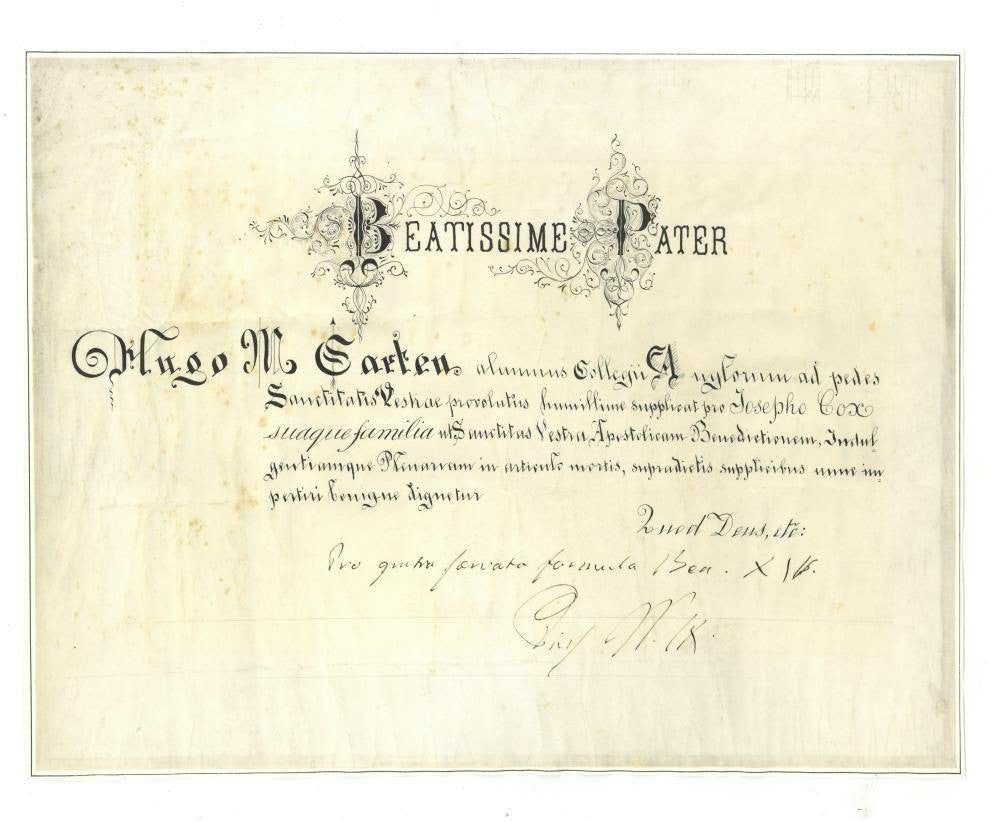 BEATISSIME PATER
Hugo M Carten alumnus Collegii Anglorum ad pedes
Sanctitatis Vestrae provolutus humillime supplicat pro Josepho Cox
suaque familia ut Sanctitas Vestra Apostolicam Benedictionem, Indul
gentiamque Plenariam in articulo mortis, supradictis supplicibus nunc im
pertiri benigne dignetur
Quod Deus, etc:
Pro gratia servata formula Ben. XIV.
Pius P. IX.